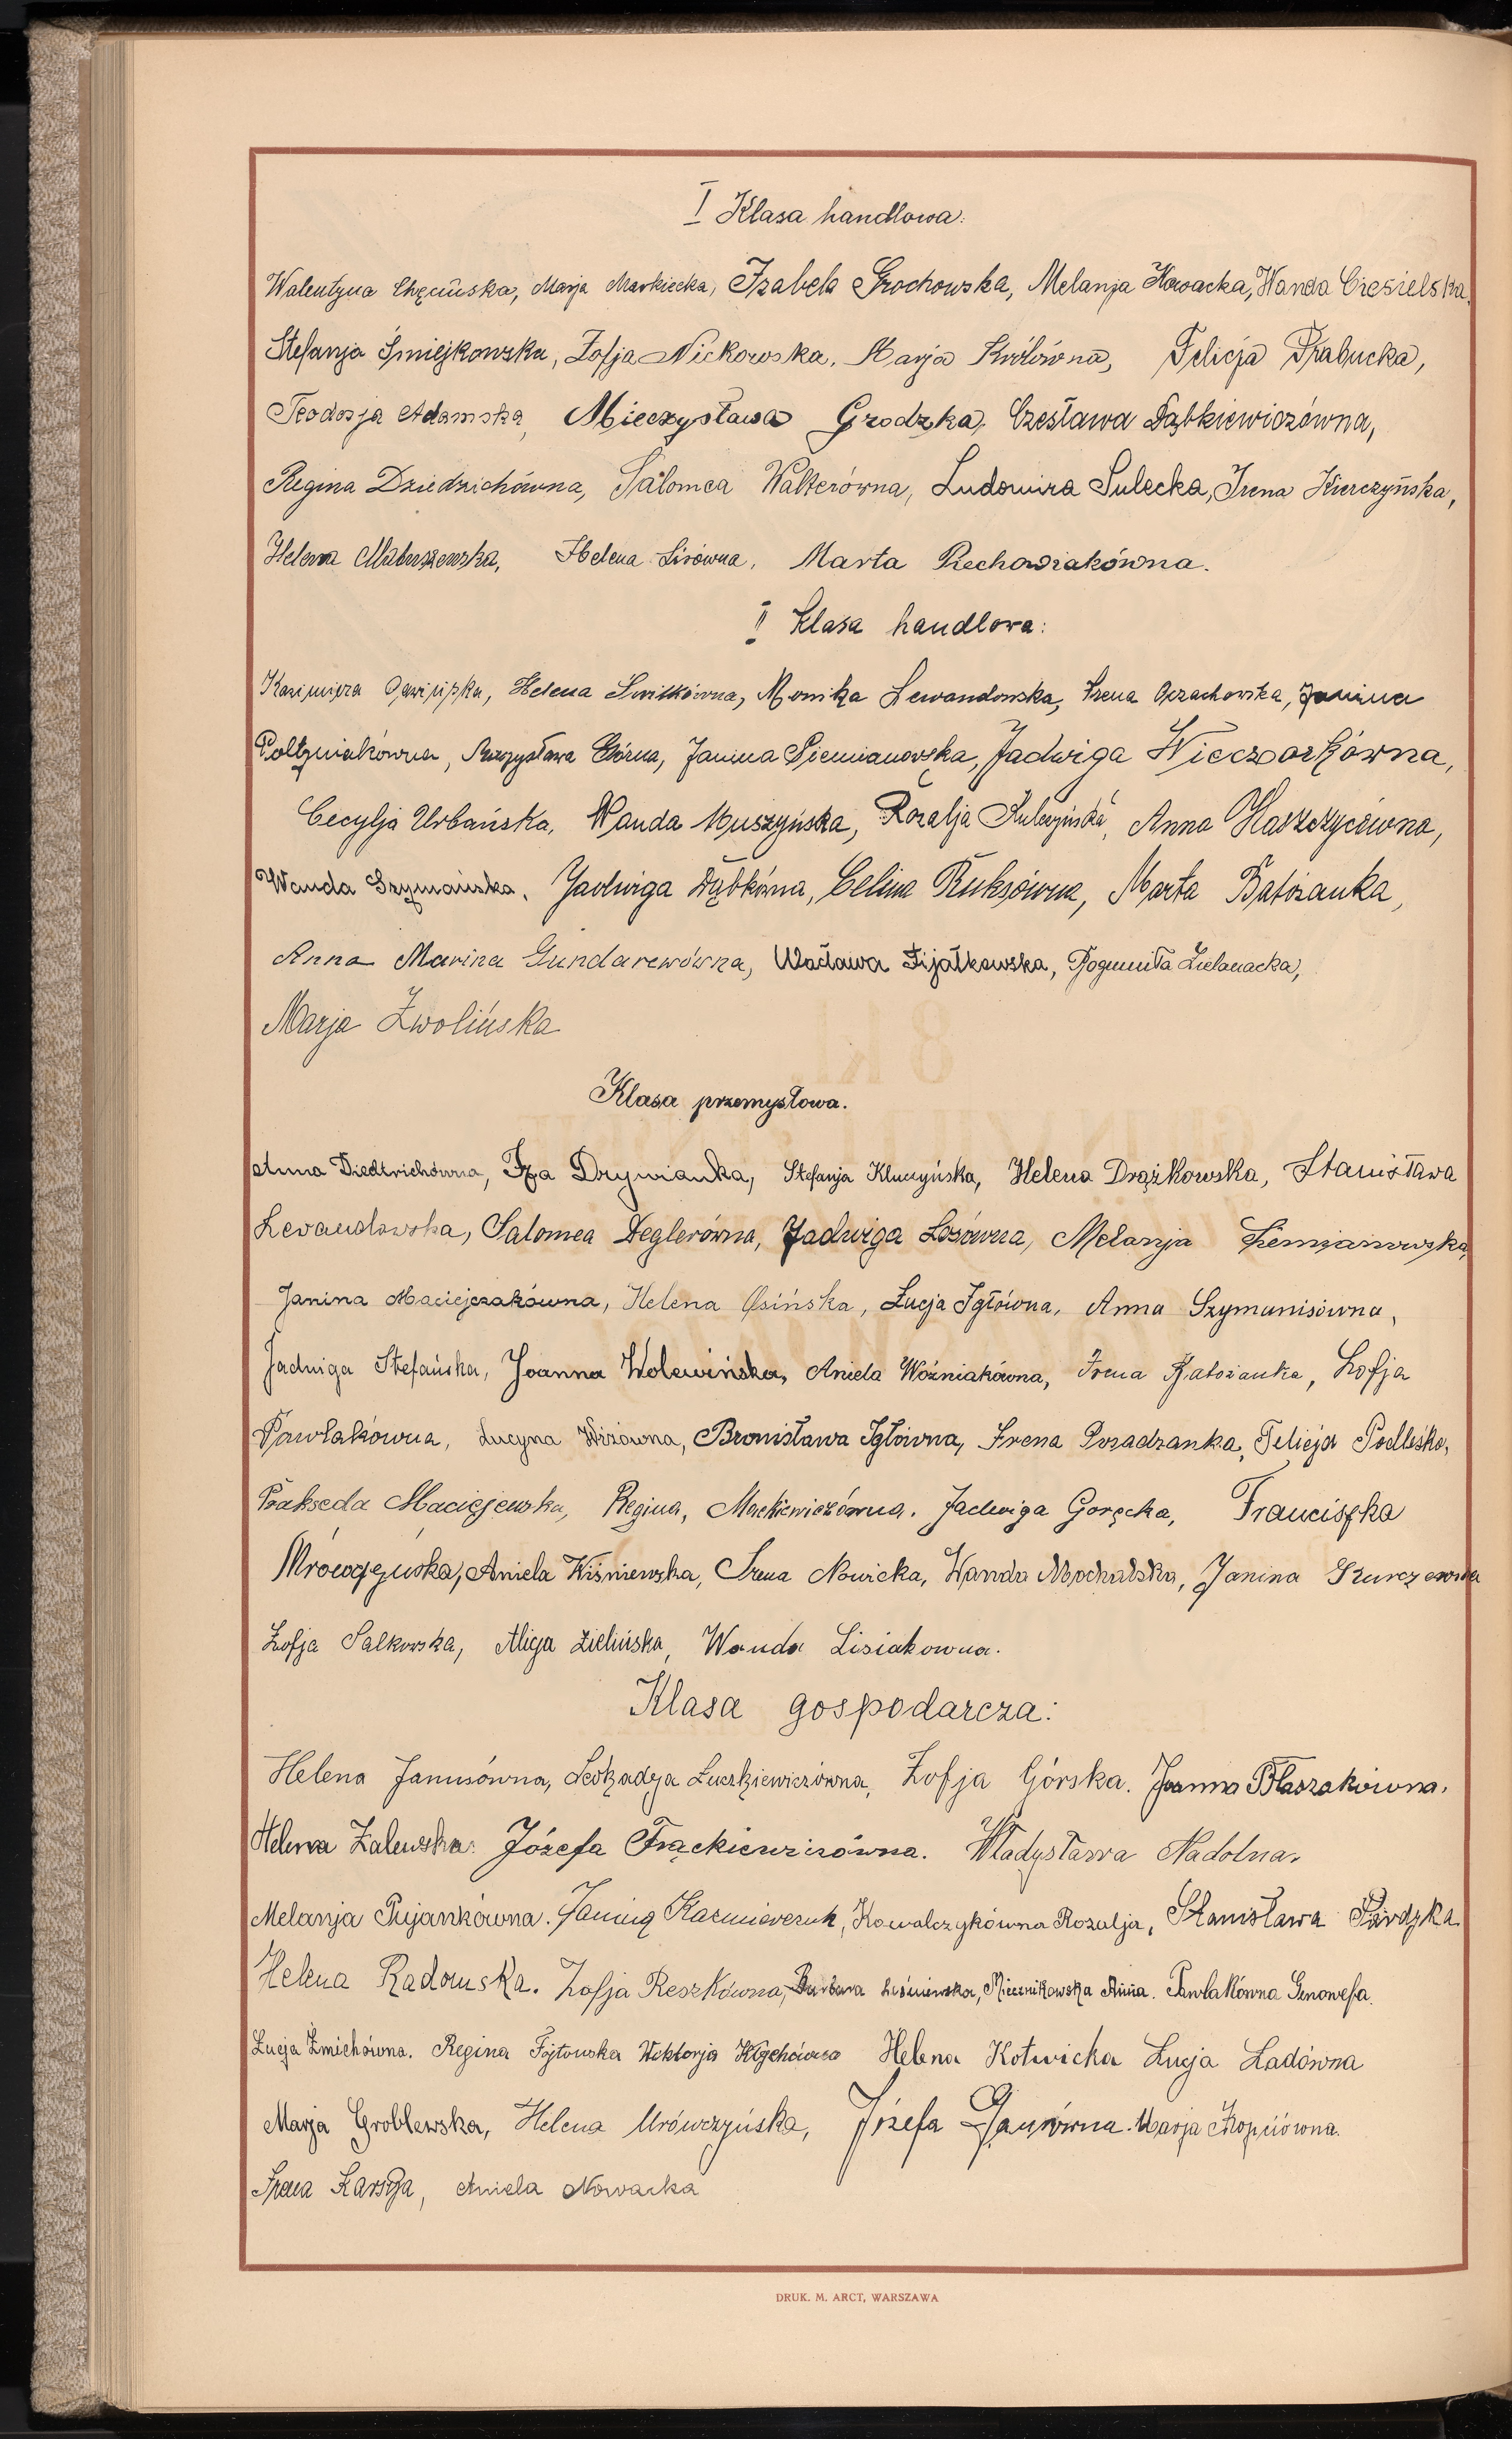 I Klasa handlowa:
Walentyna Chęcińska, Marja Markiecka, Izabela Grochowska, Melanja Nowacka, Wanda Ciesielska,
Stefanja Śmiejkowska, Zofja Nickowska, Marja Królówna, Felicja Grabucka,
Teodozja Adamska, Mieczysława Grodzka, Czesława Dąbkiewiczówna,
Regina Dziedzichówna, Salomea Walterówna, Ludomira Sulecka, Irena Kierczyńska,
Helena Matuszewska, Helena Lisówna, Marta Piechowiakówna.
II Klasa handlowa:
Kazimiera Helena Switkówna, Monika Lewandowska, Irena Orzachowska, Janina
Połtyniakówna, Górna, Janina Siemianowska, Jadwiga Wieczorkówna,
Cecylja Urbańska, Wanda Muszyńska, Rozalja Kulczyńska, Anna Haszczycówna,
Wanda Szymańska, Jadwiga Dąbkówna, Celina Ruksówna, Marta Batożanka,
Anna Marina Gundarewówna, Wacława Fijałkowska, Bogumiła Zielanacka,
Marja Zwolińska
Klasa przemysłowa.
Anna Diedtrichówna, Iza Drywianka, Stefanja Kluczyńska, Helena Drążkowska, Stanisława
Lewandowska, Salomea Deglerówna, Jadwiga Łosówna, Melanja Siemianowska,
Janina Maciejczakówna, Helena Osińska, Łucja Igłówna, Anna Szymanisówna,
Jadwiga Stefańska, Joanna Wolewińska, Aniela Woźniakówna, Irena Batożanka, Zofja
Pawlakówna, Lucyna Wiżówna, Bronisława Igłówna, Irena Posadzanka, Felicja Podleśka,
Prakseda Maciejewska, Regina, Mackiewiczówna. Jadwiga Goręcka, Franciszka
Mrówczyńska, Aniela Wiśniewska, Irena Nowicka, Wanda Mochalska, Janina Skurczewna
Zofja Salkowska, Alicja Zielińska, Wanda Lisiakowna.
Klasa gospodarcza:
Helena Janusówna, Leokadja Łuczkiewiczówna, Zofja Górska. Joanna Błaszakówna.
Helena Zalewska. Józefa Frąckiewiczówna. Władysława Nadolna.
Melanja Pujankówna. Janina Kazmierczak, Kowalczykówna Rozalja, Stanisława Pardyka.
Helena Radomska. Zofja Reszkówna, Barbara Leśniewska, Miecznikowska Anna. Pawlakówna Genowefa.
Łucja Żmichówna. Regina Fojtowska Wiktorja Kłychówna Helena Kotwicka Łucja Ladówna
Marja Groblewska, Helena Mrówczyńska, Józefa Ganówna. Marja Kropciówna.
Irena Karsza, Aniela Nowacka
DRUK. M. ARCT, WARSZAWA